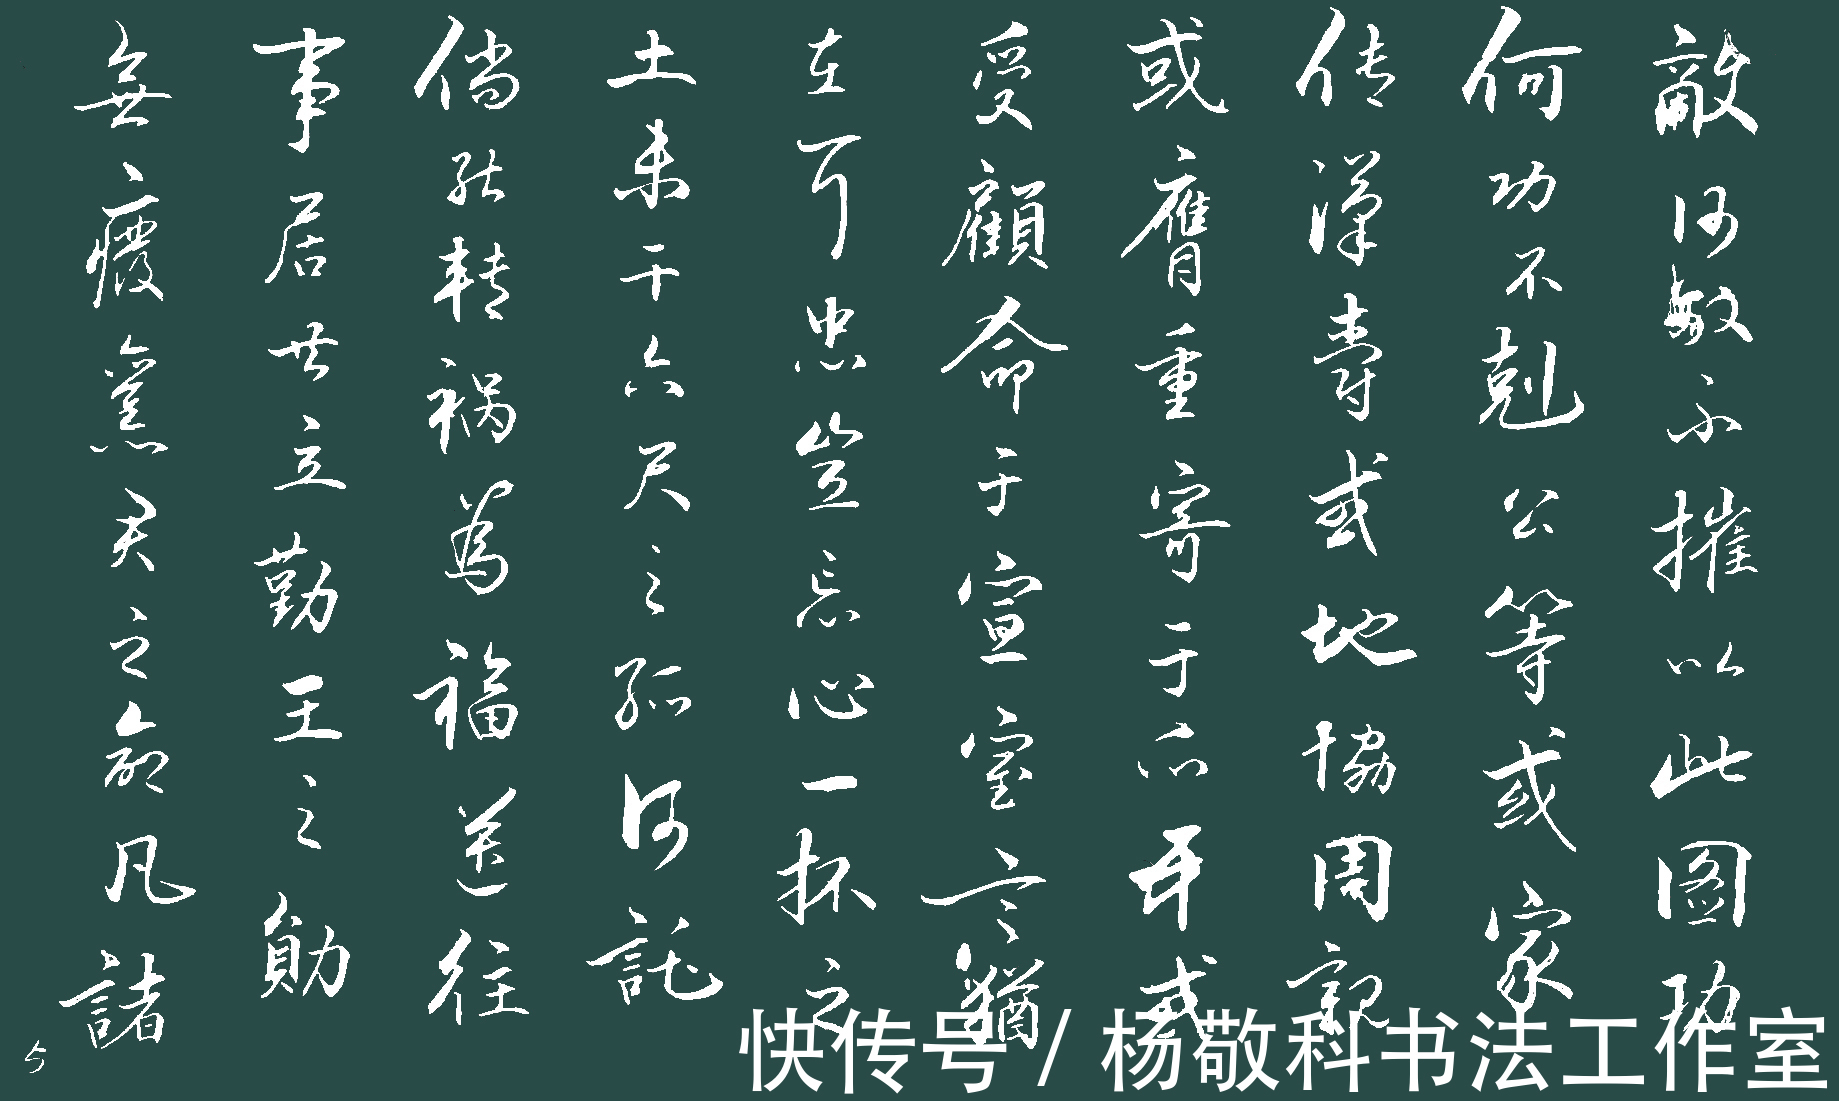 敵何敵不摧以此图功
何功不剋公等或家
传漢爵或地協周親
或膺重寄于爪牙或
受顧命于宣室言猶
在耳忠岂忘心一抔之
土未干六尺之孤何託
倘能转祸為福送往
事居共立勤王之勛
無廢舊君之命凡諸
5
快传号 / 杨敬科书法工作室